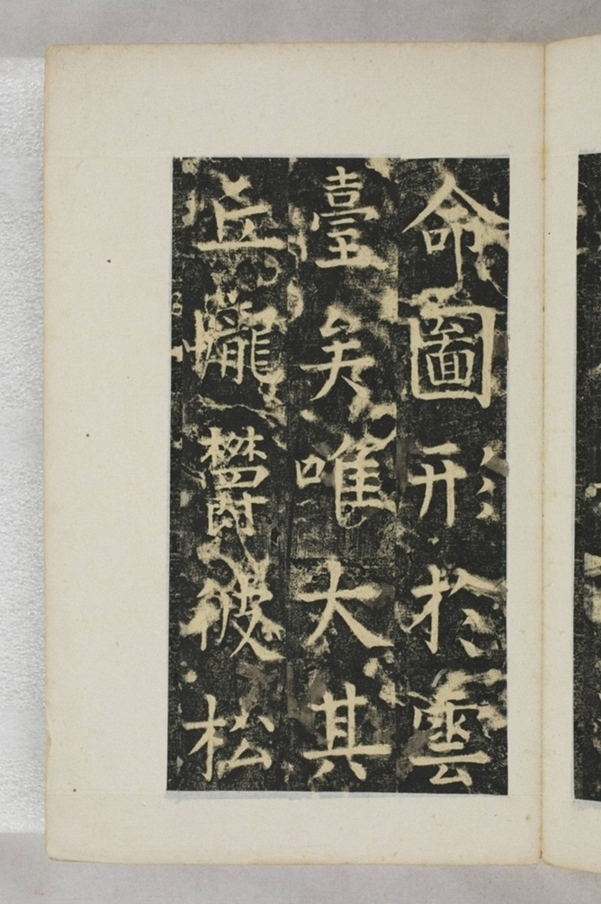 命圖形於雲
臺矣唯大其
丘壠鬱彼松